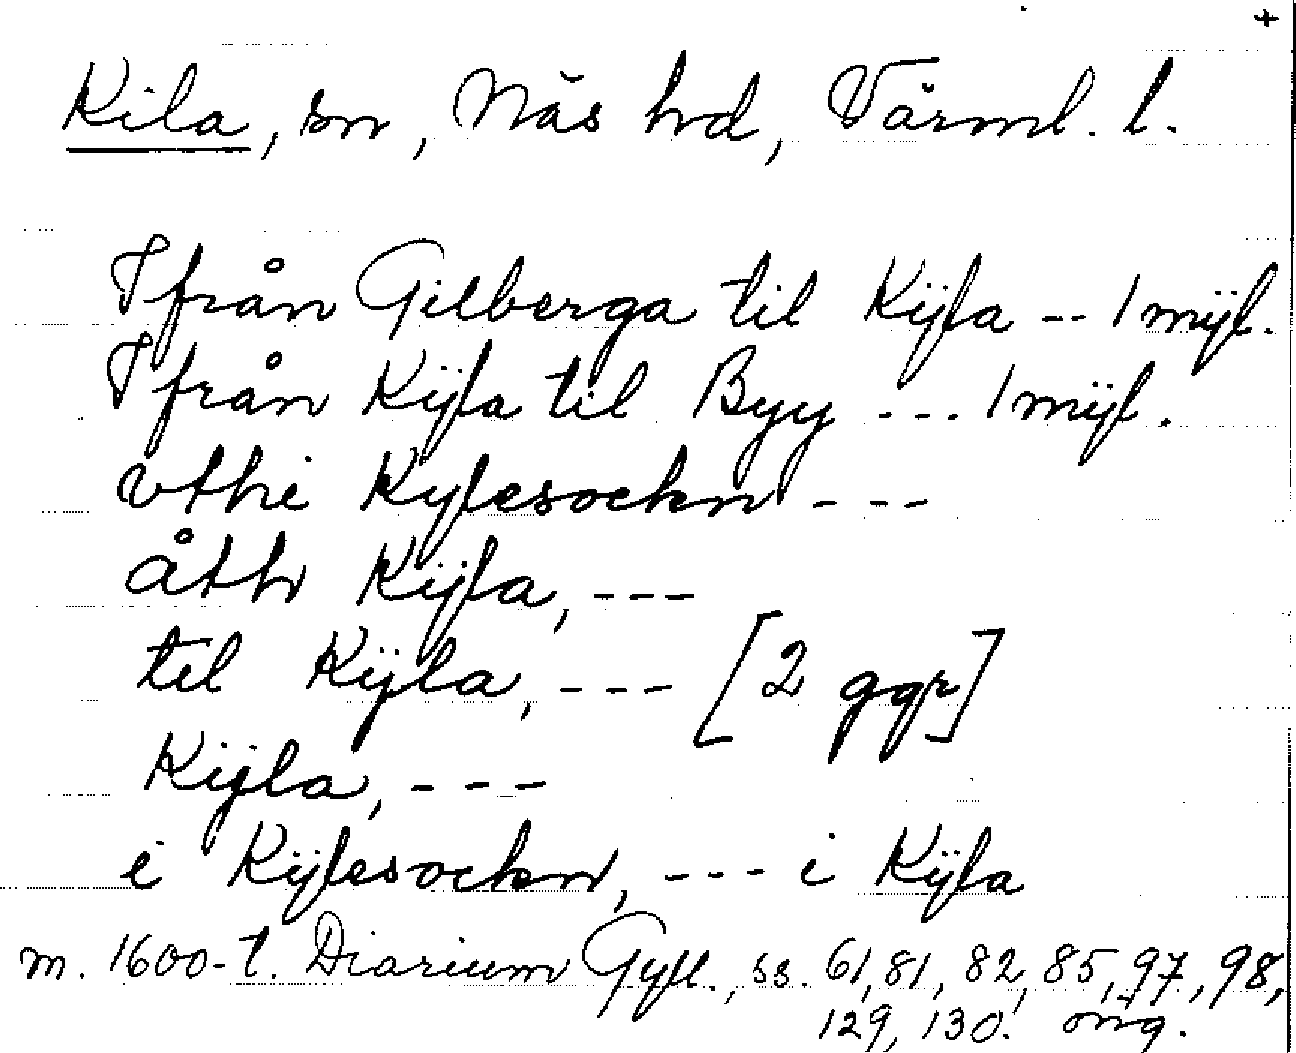 +
Kila, sn, Näs hd, Värml. l.
Ifrån Gilberga til Kÿla -- 1 mÿl.
Ifrån Kÿla til Byy --- 1 mÿl.
vthi Kylesockn ---
åth Kÿla, ---
til Kÿla, --- [2 ggr]
Kÿla, ---
i Kÿlesockn, --- i Kÿla
m. 1600-t. Diarium Gyll., ss. 61, 81, 82, 85, 97, 98,
129, 130. orig.